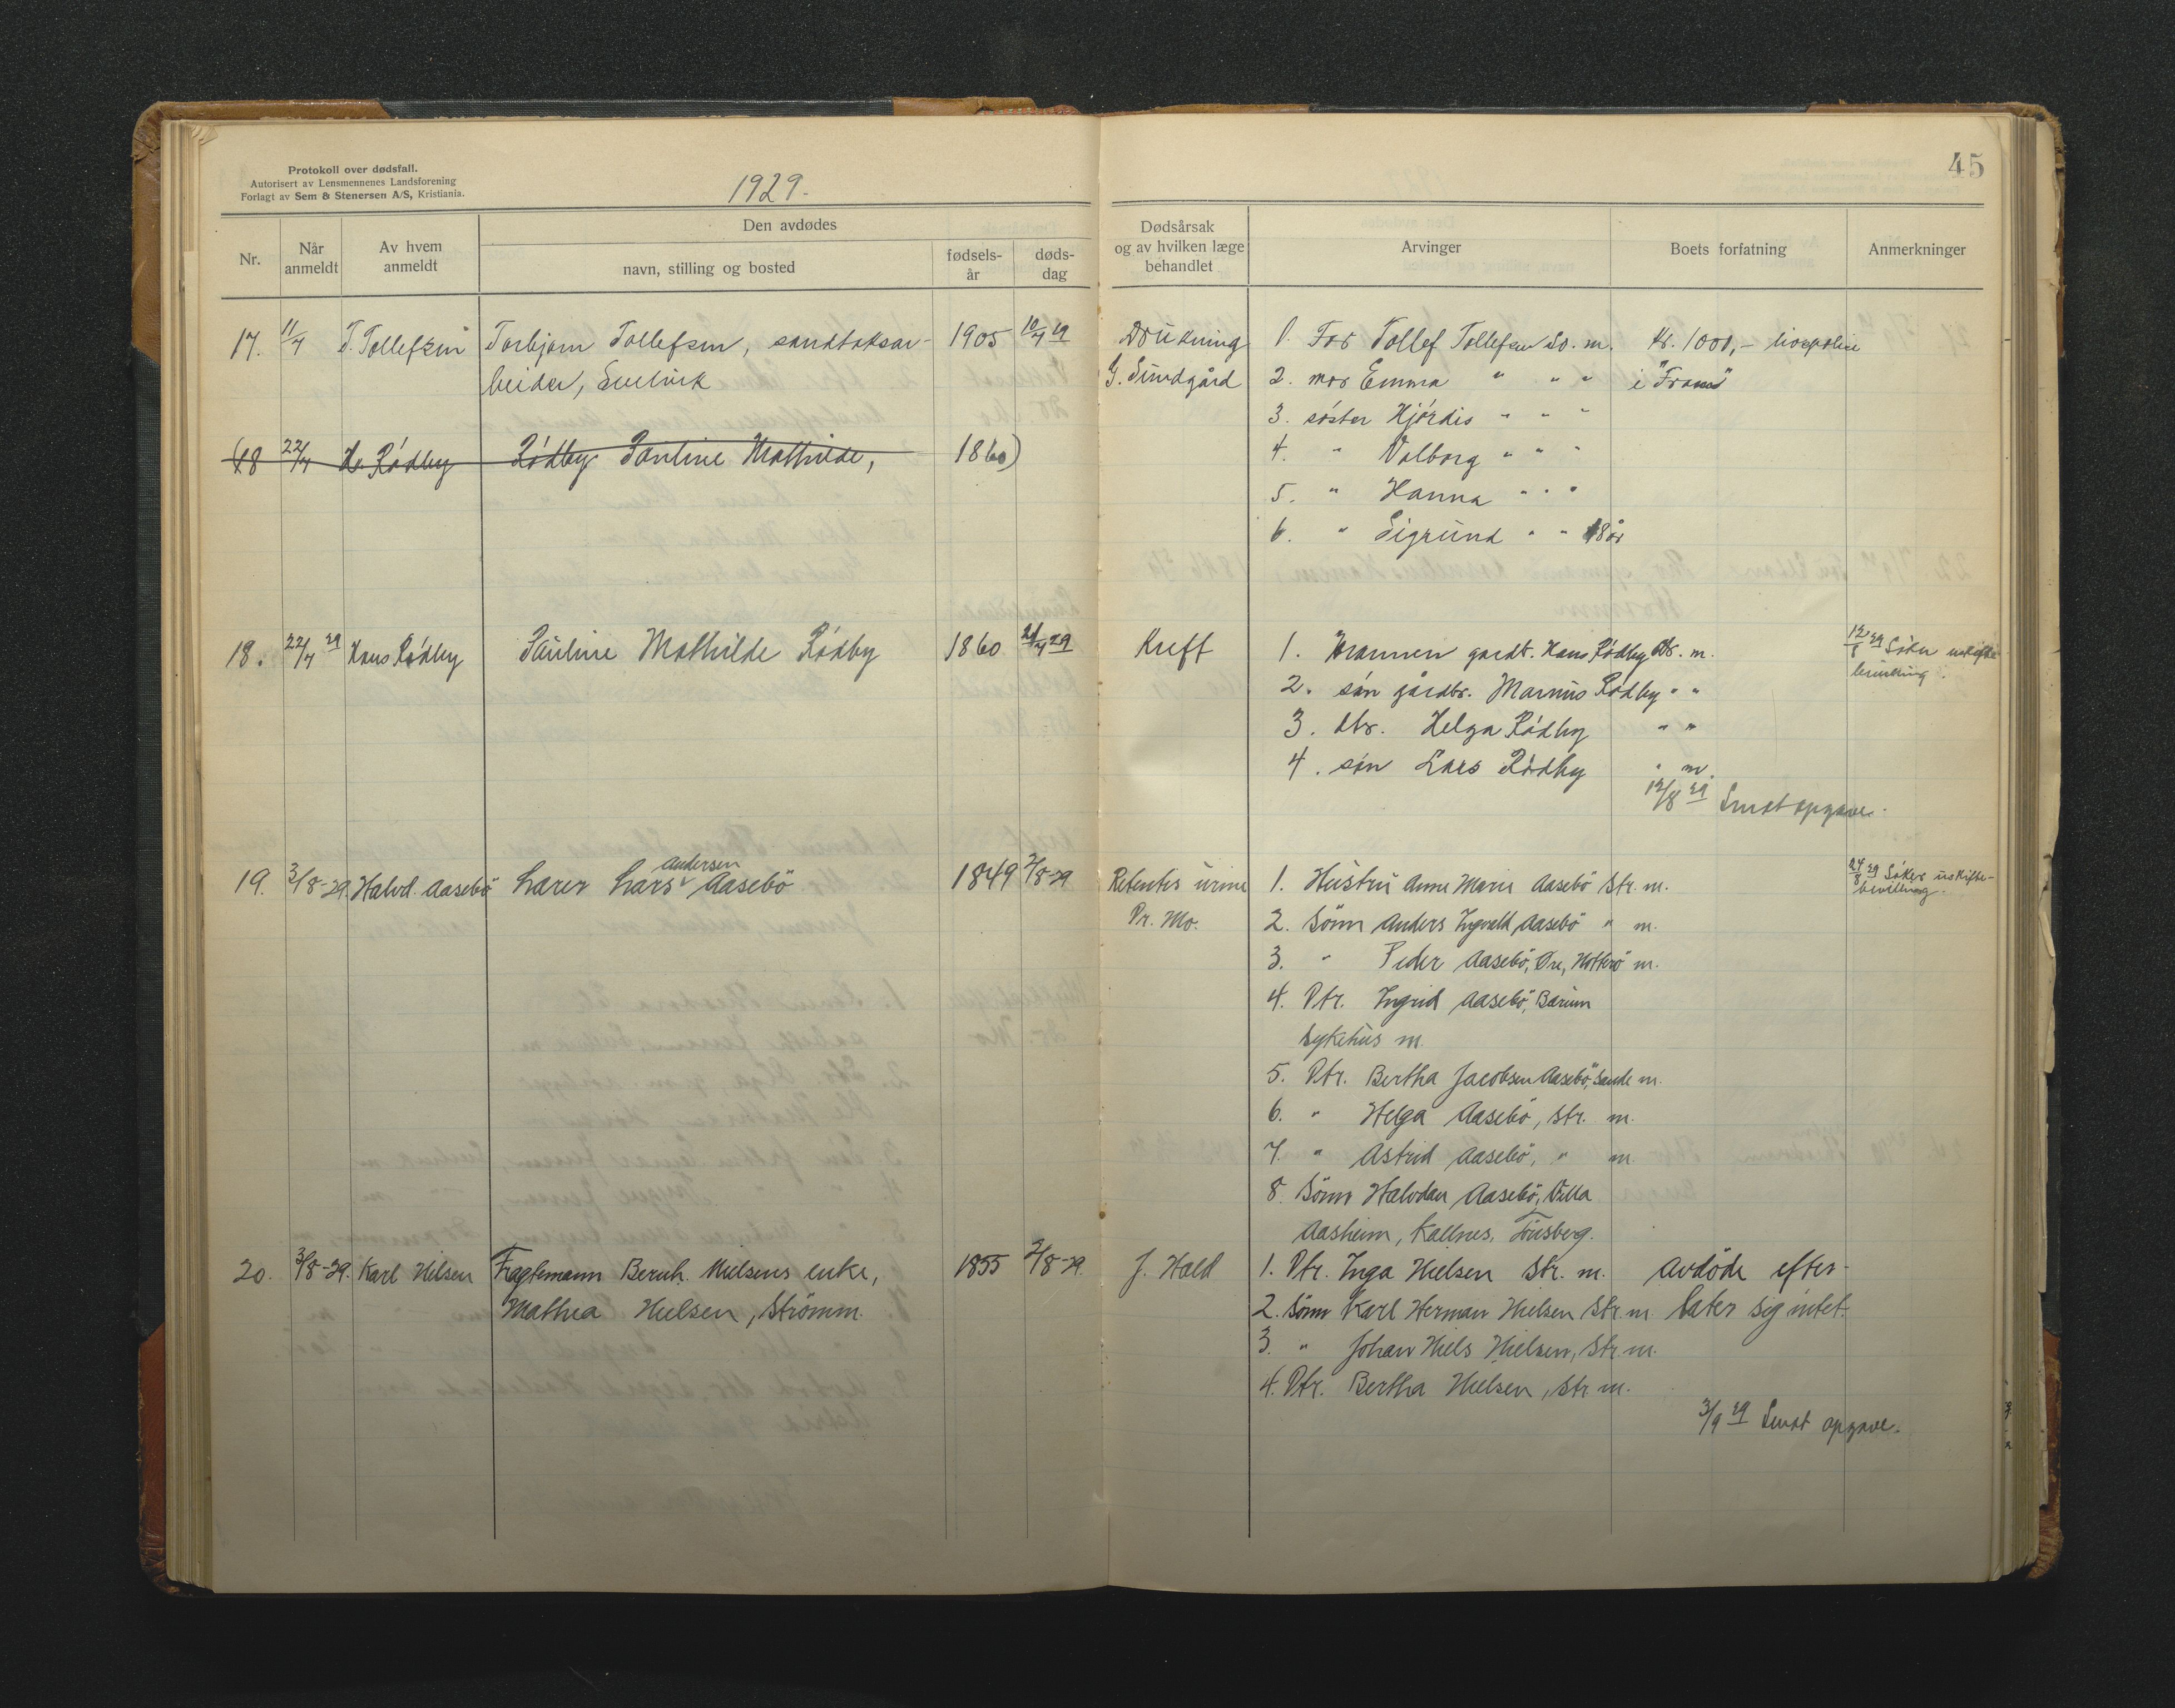 Protokoll over dødsfall.
Autorisert av Lensmennenes Landsforening
Forlagt av Sem & Stenersen A/S, Kristiania.
1929.
45
Nr.
Når anmeldt
Av hvem anmeldt
Den avdødes
navn, stilling og bosted
fødsels-år
døds-dag
Dødsårsak og av hvilken læge behandlet
Arvinger
Boets forfatning
Anmerkninger
17. 11/7 T. Tollefsen Torbjørn Tollefsen, sandtaksar- 1905 10/7 29 Drukning 1. Far Tollef Tollefsen So. m. Kr. 1000,- livspolise
beider, G. Sundgård 2. mor Emma " " " i "Fram"
3. søster Hjørdis " " "
(18 22/7 H. Rødby Rødby Pauline Mathilde, 1860) 4. " Valborg " " "
5. " Hanna " " "
6. " Sigrund " " 18 år
18. 22/7 29 Hans Rødby Pauline Mathilde Rødby 1860 21/7 29 Kreft 1. Mannen gårdbr. Hans Rødby Str. m. 12/8 29 Søker uskifte-
2. søn gårdbr. Marius Rødby " " bevilling.
3. dtr. Helga Rødby " "
4. søn Lars Rødby " m.
12/8 29 Sendt opgave.
19. 3/8-29. Halvd. Aasebö Lærer Lars Andersen Aasebö 1849 2/8-29 Retentio urine 1. Hustru Anne Marie Aasebö Str. m. 24/8 29 Søker uskifte-
Dr. Mo. 2. Sönn Anders Ingvald Aasebö " m. bevilling.
3. " Peder Aasebö, Öre, Nötterö m.
4. Dtr. Ingrid Aasebö, Bærum
sykehus m.
5. Dtr. Bertha Jacobsen Aasebö, Sande m.
6. " Helga Aasebö, Str. m.
7. " Astrid Aasebö, " m.
8. Sönn Halvdan Aasebö, Villa
Aasheim, Kallnes, Tönsberg.
20. 3/8-29. Karl Nielsen Fragtemann Bernh. Nielsens enke, 1855 2/8-29. J. Hald 1. Dtr. Inga Nielsen Str. m. Avdöde efter-
Mathea Nielsen, Strömm. 2. Sönn Karl Herman Nielsen Str. m. later sig intet.
3. " Johan Niels Nielsen, Str. m.
4. Dtr. Bertha Nielsen, Str. m.
3/9 29 Sendt opgave.